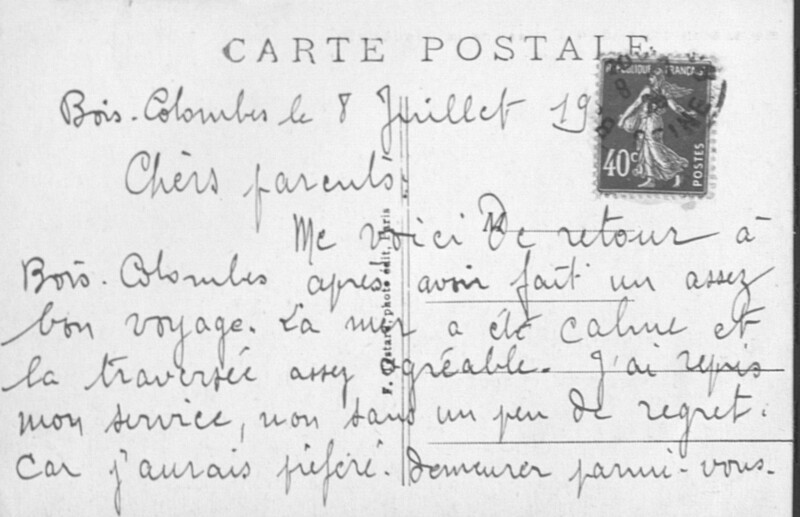 CARTE POSTALE
RÉPUBLIQUE FRANÇAISE
40c
POSTES
Bois-Colombes le 8 Juillet 19
Chers parents
Me voici de retour à
Bois-Colombes après avoir fait un assez
bon voyage. La mer a été calme et
la traversée assez agréable. J'ai repris
mon service, non sans un peu de regret.
Car j'aurais préféré demeurer parmi-vous.
photo édit, Paris